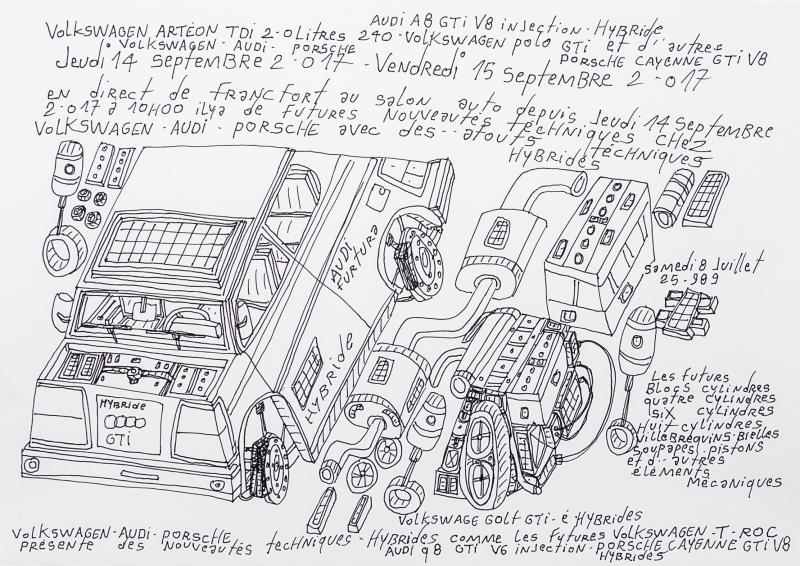 AUDI A8 GTi V8 injection - HYBRide
VOLKSWAGEN ARTÉON TDI 2-0 LitRES 240 - VOLKSWAGEN POLO GTi et d'autres
VOLKSWAGEN - AUDI - PORSCHE
PORSCHE CAYENNE GTi V8
Jeudi 14 SeptemBRe 2-017 - VendRedi 15 SeptemBRe 2-017
en direct de FRANCFORT au salon auto depuis Jeudi 14 SeptemBRe
2-017 à 10H00 ilya de Futures Nouveautés techniques CHEZ
VOLKSWAGEN - AUDI - PORSCHE avec des - atouts techniques
HYBRides
AUDI FURTURA
HYBRide
HYBRide
GTi
samedi 8 Juillet
25-989
Les Futurs
Blocs cylindres
quatre cylindres
six cylindres
Huit cylindres
VilleBRequins Bielles
soupapes, pistons
et d'autres
éléments
Mécaniques
VOLKSWAGE GOLT GTi-é HYBRides
VOLKSWAGEN - AUDI - PORSCHE, techniques - HYBRides comme les futures VOLKSWAGEN - T - ROC
PRÉSENTE des Nouveautés AUDI q8 GTI V6 injection - PORSCHE CAYENNE GTi V8
HYBRides